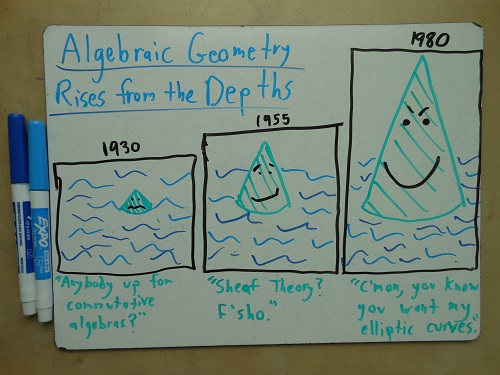 Algebraic Geometry
Rises from the Depths
1930
1955
1980
"Anybody up for
commutative
algebras?"
"Sheaf Theory?
F'sho."
"C'mon, you know
you want my
elliptic curves."
EXPO